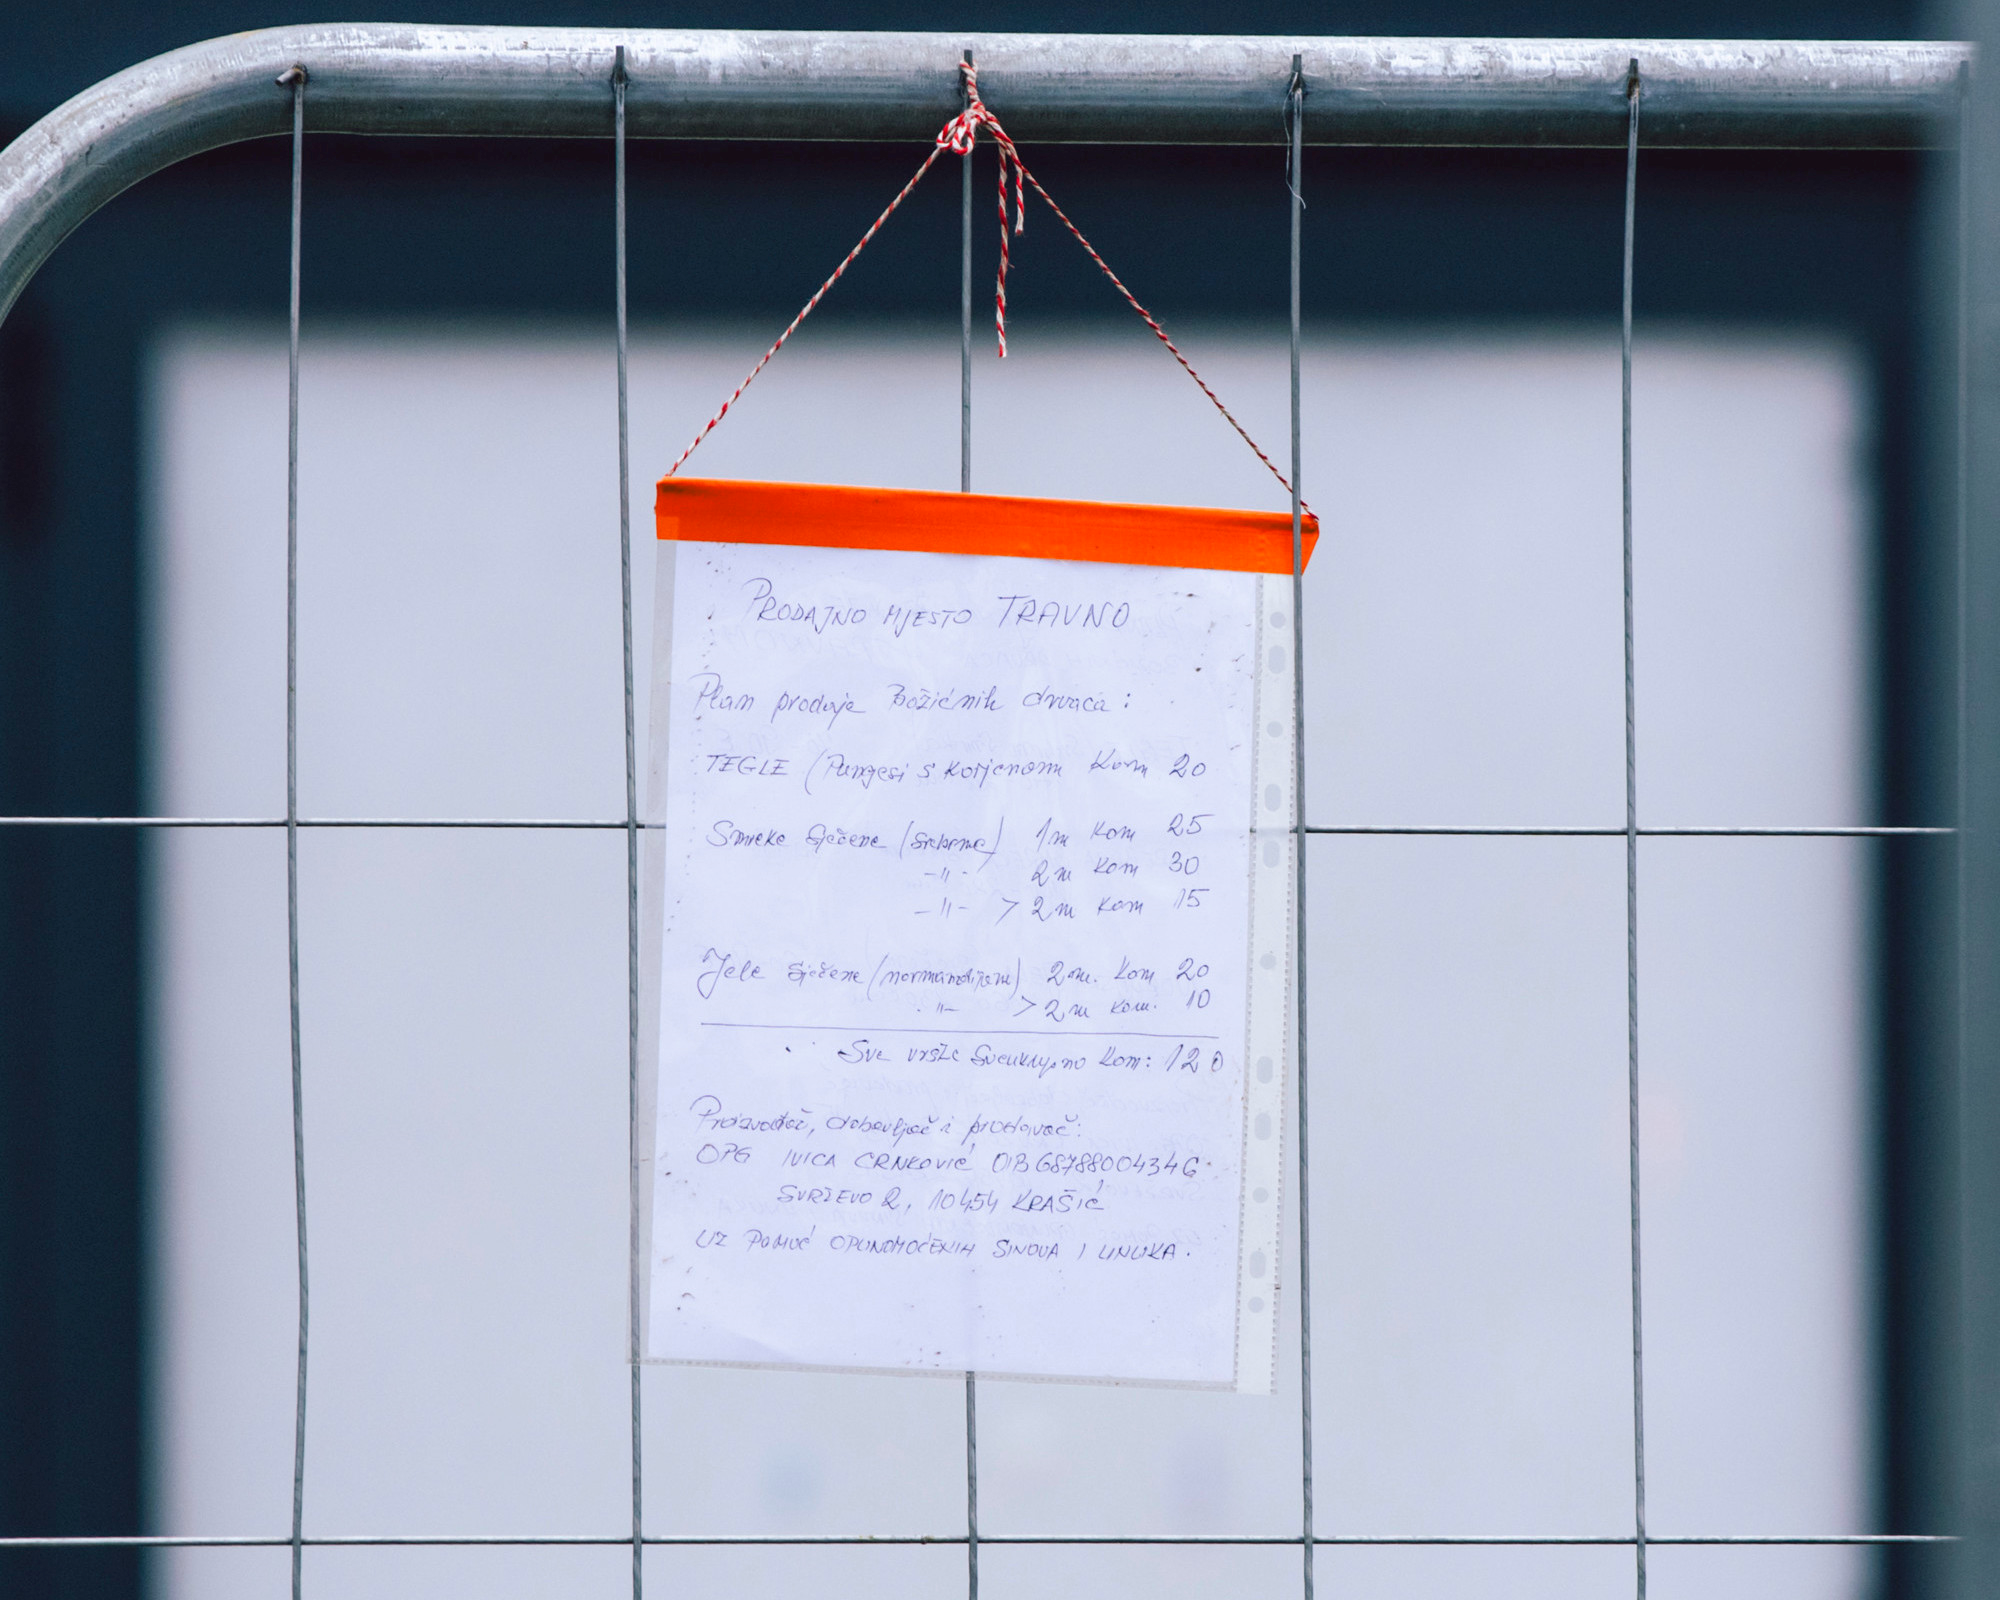 PRODAJNO MJESTO TRAVNO
Plan prodaje Božićnih drvaca:
TEGLE (Panjesi s korjenom Kom 20
Smreke sječene (srebrne) 1m Kom 25
-"- 2m Kom 30
-"- >2m Kom 15
Jele sječene (normandijene) 2m. Kom 20
"- >2m Kom. 10
Sve vrste sveukupno Kom: 120
Proizvođač, dobavljač i prodavač:
OPG IVICA CRNKOVIĆ OIB 68788004346
SVRŽEVO 2, 10454 KRAŠIĆ
UZ POMOĆ OPUNOMOĆENIH SINOVA I UNUKA.